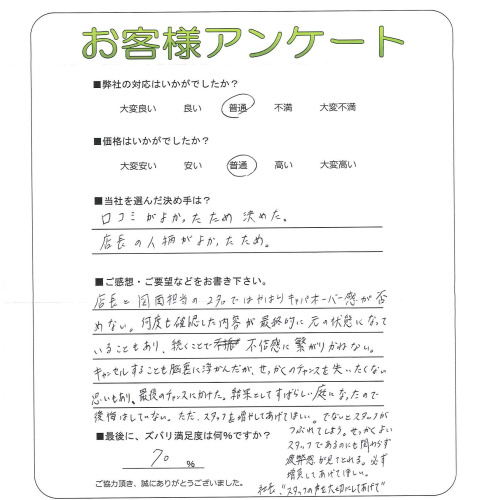 お客様アンケート
■弊社の対応はいかがでしたか？
大変良い 良い 普通 不満 大変不満
■価格はいかがでしたか？
大変安い 安い 普通 高い 大変高い
■当社を選んだ決め手は？
口コミがよかったため決めた。
店長の人柄がよかったため。
■ご感想・ご要望などをお書き下さい。
店長と図面担当の2人ではやはりキャパオーバー感が否
めない。何度も確認した内容が最終的に元の状態になって
いることもあり、続くことで 不信感に繋がりかねない。
キャンセルすることも脳裏に浮かんだが、せっかくのチャンスを失いたくない
思いもあり、最後のチャンスにかけた。結果としてすばらしい庭になったので
後悔はしていない。ただ、スタッフを増やしてあげてほしい。でないとスタッフが
つぶれてしまう。せっかくよい
スタッフであるのにも関わらず
疲弊感が見てとれる。必ず
増員してあげてほしい。
社長、"スタッフの声を大切にしてあげて"
■最後に、ズバリ満足度は何%ですか？
70 %
ご協力頂き、誠にありがとうございました。